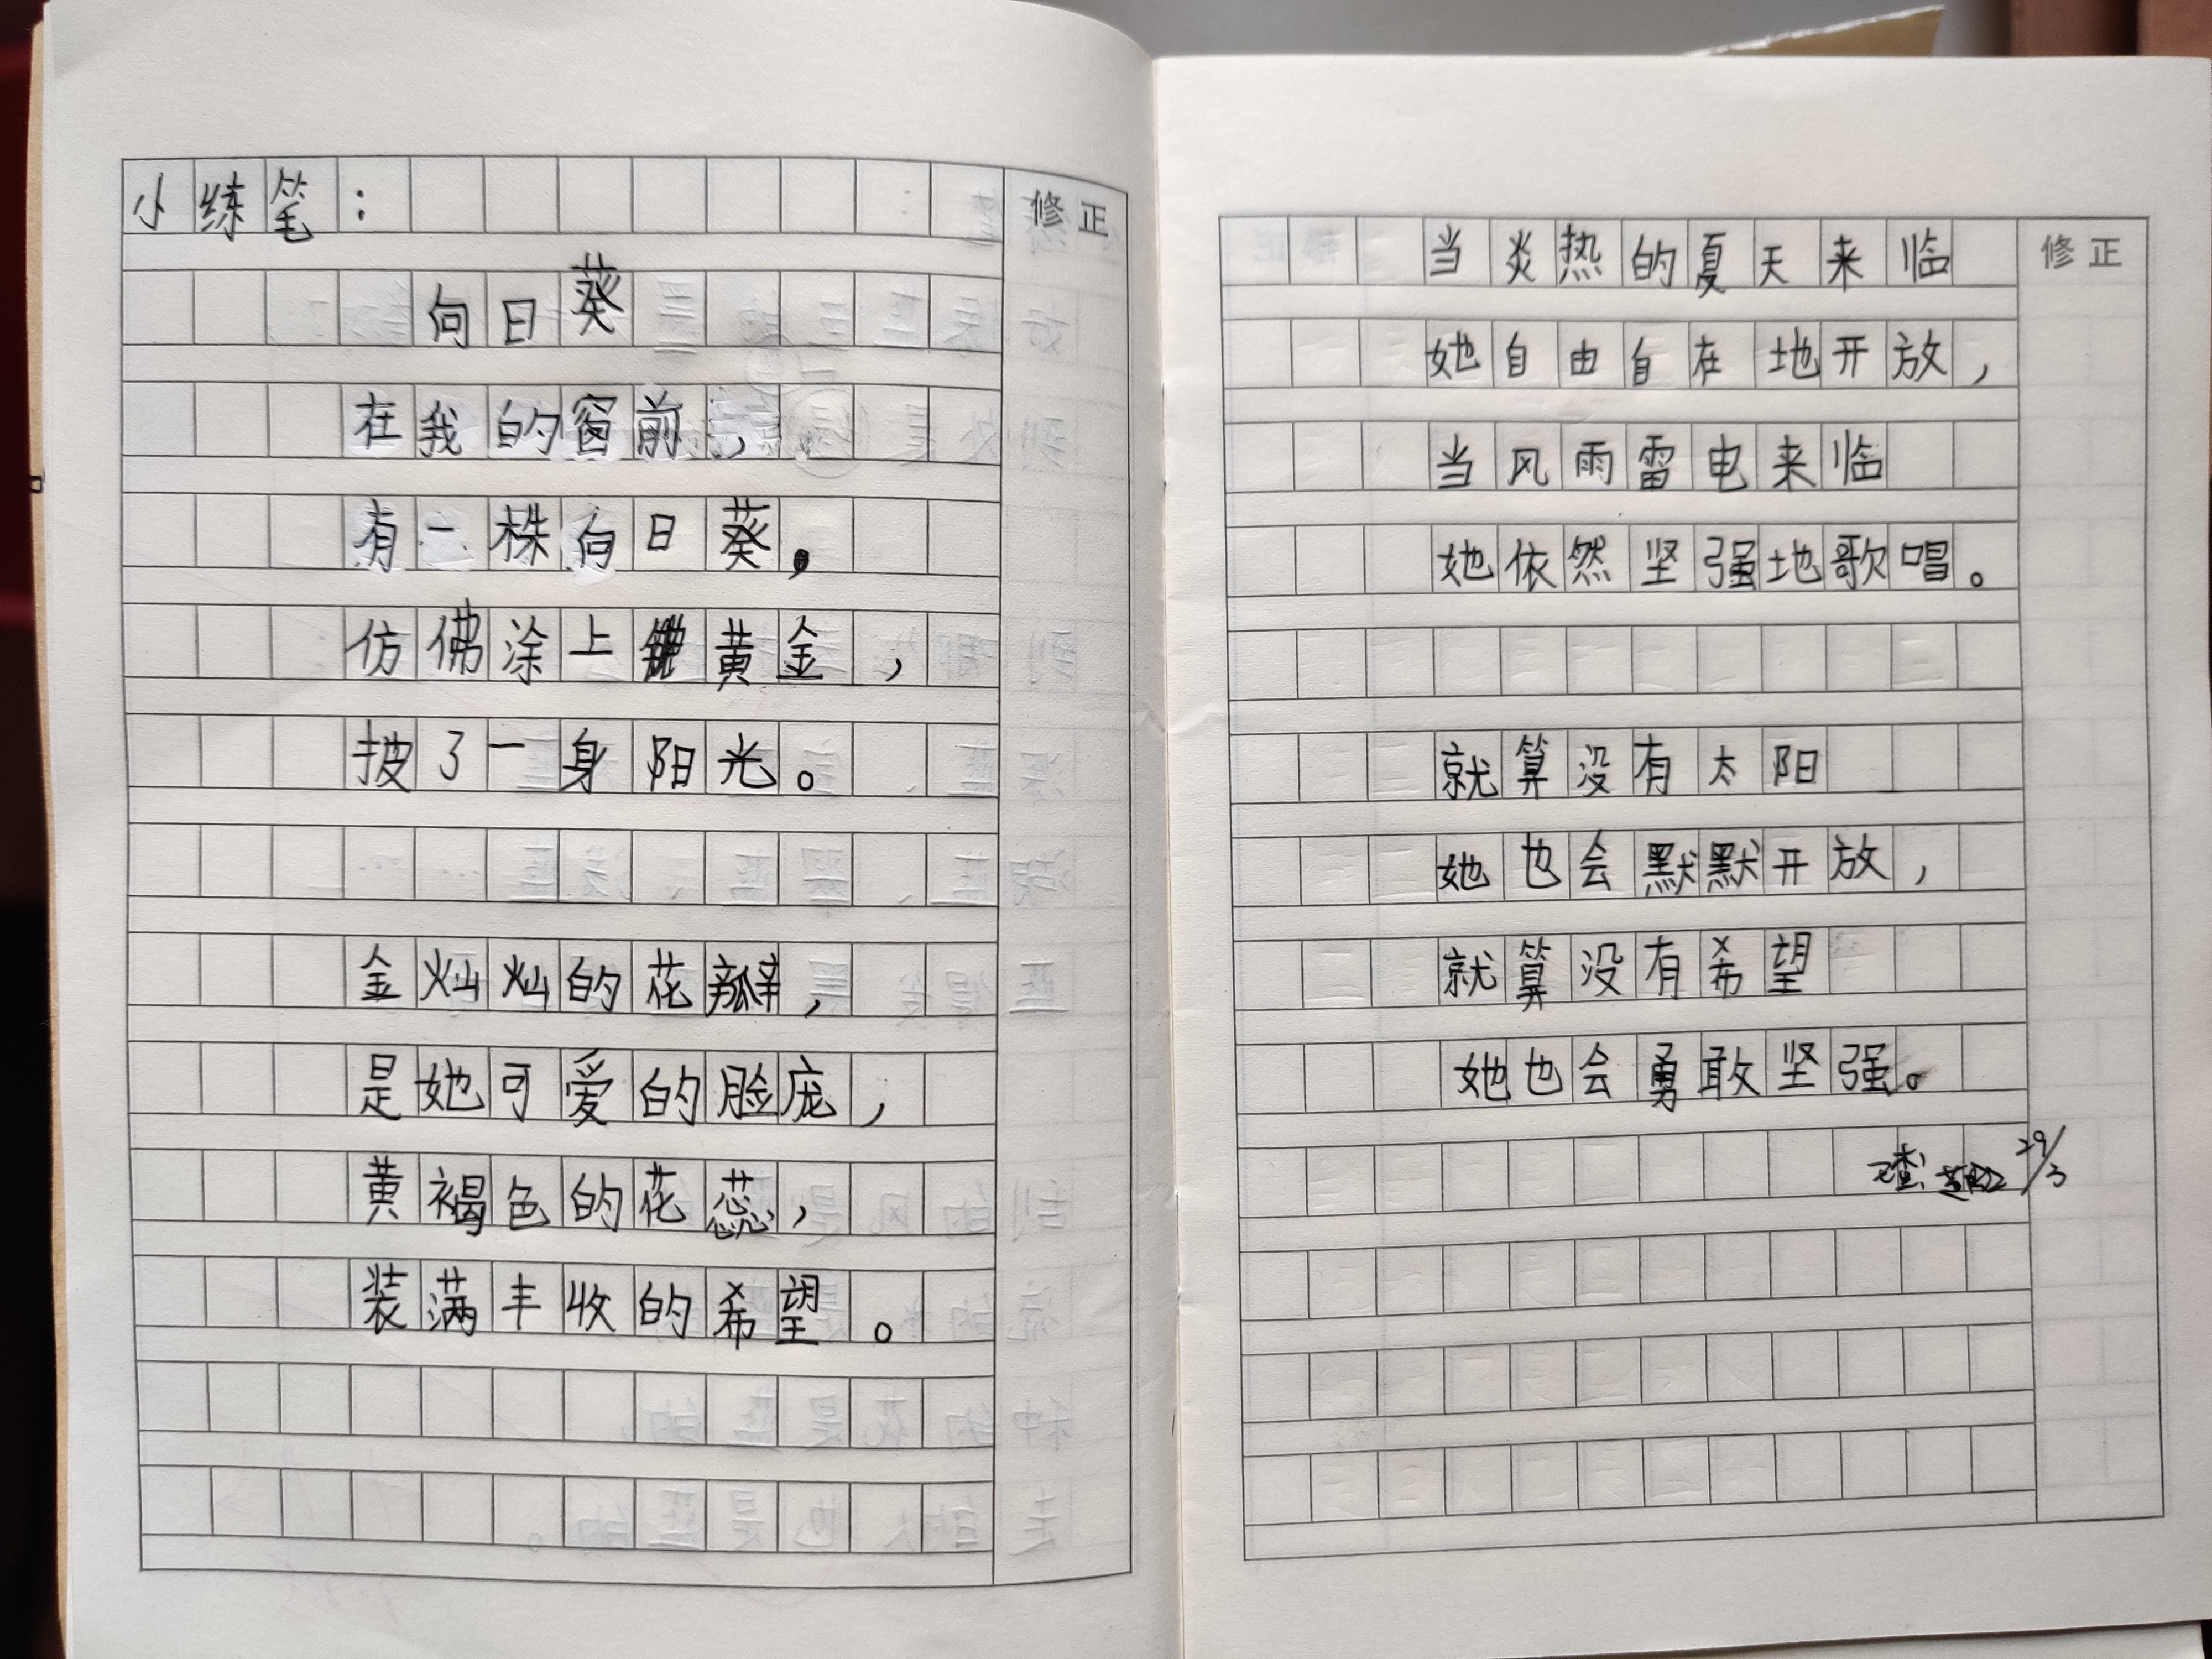 小练笔：
修正
向日葵
在我的窗前，
有一株向日葵，
仿佛涂上黄金，
披了一身阳光。
金灿灿的花瓣，
是她可爱的脸庞，
黄褐色的花蕊，
装满丰收的希望。
修正
当炎热的夏天来临
她自由自在地开放，
当风雨雷电来临
她依然坚强地歌唱。
就算没有太阳
她也会默默开放，
就算没有希望
她也会勇敢坚强。
29/3